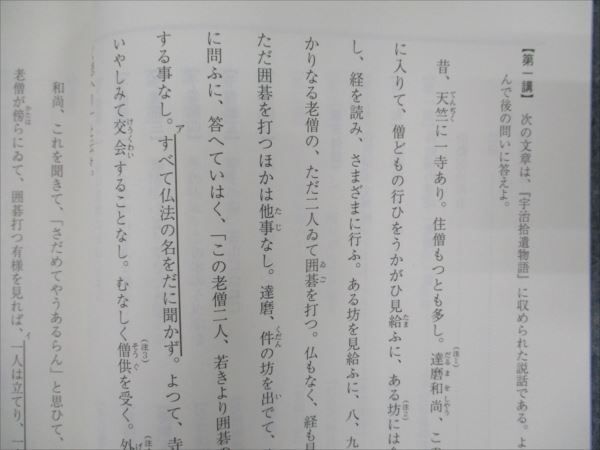 【第一講】 次の文章は、『宇治拾遺物語』に収められた説話である。よ
んで後の問いに答えよ。
昔、天竺に一寺あり。住僧もつとも多し。達磨和尚、この
に入りて、僧どもの行ひをうかがひ見給ふに、ある坊には
し、経を読み、さまざまに行ふ。ある坊を見給ふに、八、九
かりなる老僧の、ただ二人ゐて囲碁を打つ。仏もなく、経も見
ただ囲碁を打つほかは他事なし。達磨、件の坊を出でて、
に問ふに、答へていはく、「この老僧二人、若きより囲碁の
する事なし。すべて仏法の名をだに聞かず。よつて、寺
いやしみて交会することなし。むなしく僧供を受く。外
和尚、これを聞きて、「さだめてやうあるらん」と思ひて、
老僧が傍らにゐて、囲碁打つ有様を見れば、一人は立てり、一